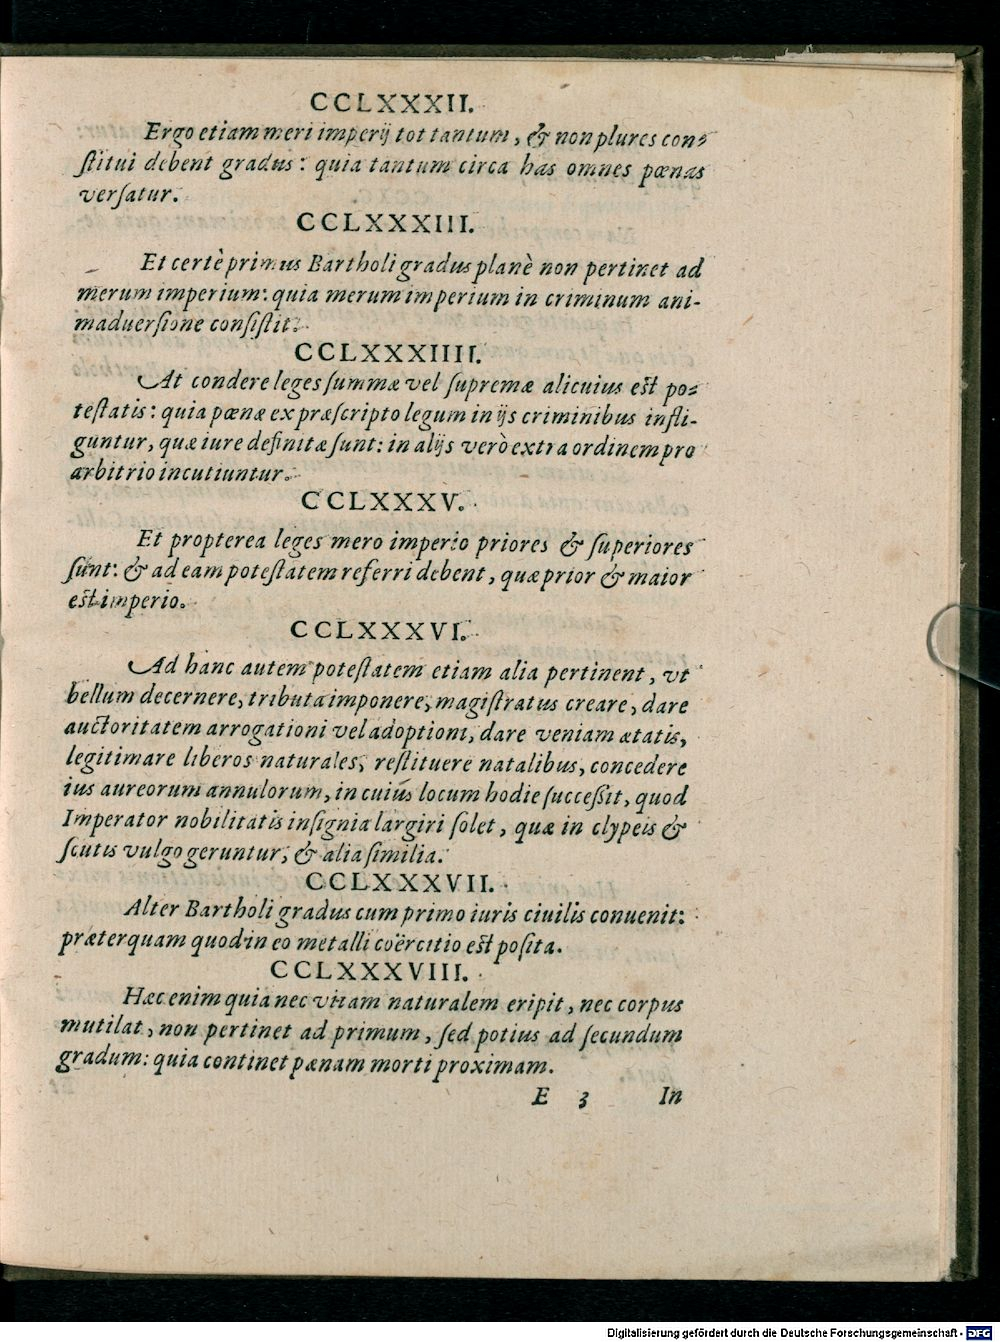 CCLXXXII.
Ergo etiam meri imperij tot tantum, & non plures con-
ſtitui debent gradus: quia tantum circa has omnes pœnas
verſatur.
CCLXXXIII.
Et certè primus Bartholi gradus planè non pertinet ad
merum imperium: quia merum imperium in criminum ani-
maduerſione conſiſtit.
CCLXXXIIII.
At condere leges ſummæ vel ſupremæ alicuius eſt po-
teſtatis: quia pœnæ ex præſcripto legum in ijs criminibus infli-
guntur, quæ iure definitæ ſunt: in alijs verò extra ordinem pro
arbitrio incutiuntur.
CCLXXXV.
Et propterea leges mero imperio priores & ſuperiores
ſunt: & ad eam poteſtatem referri debent, quæ prior & maior
eſt imperio.
CCLXXXVI.
Ad hanc autem poteſtatem etiam alia pertinent, vt
bellum decernere, tributa imponere, magiſtratus creare, dare
auctoritatem arrogationi vel adoptioni, dare veniam ætatis,
legitimare liberos naturales, reſtituere natalibus, concedere
ius aureorum annulorum, in cuiús locum hodie ſucceſſit, quod
Imperator nobilitatis inſignia largiri ſolet, quæ in clypeis &
ſcutis vulgo geruntur, & alia ſimilia.
CCLXXXVII.
Alter Bartholi gradus cum primo iuris ciuilis conuenit:
præterquam quod in eo metalli coërcitio eſt poſita.
CCLXXXVIII.
Hæc enim quia nec vitam naturalem eripit, nec corpus
mutilat, non pertinet ad primum, ſed potius ad ſecundum
gradum: quia continet pænam morti proximam.
E 3 In
Digitalisierung gefördert durch die Deutsche Forschungsgemeinschaft - DFG